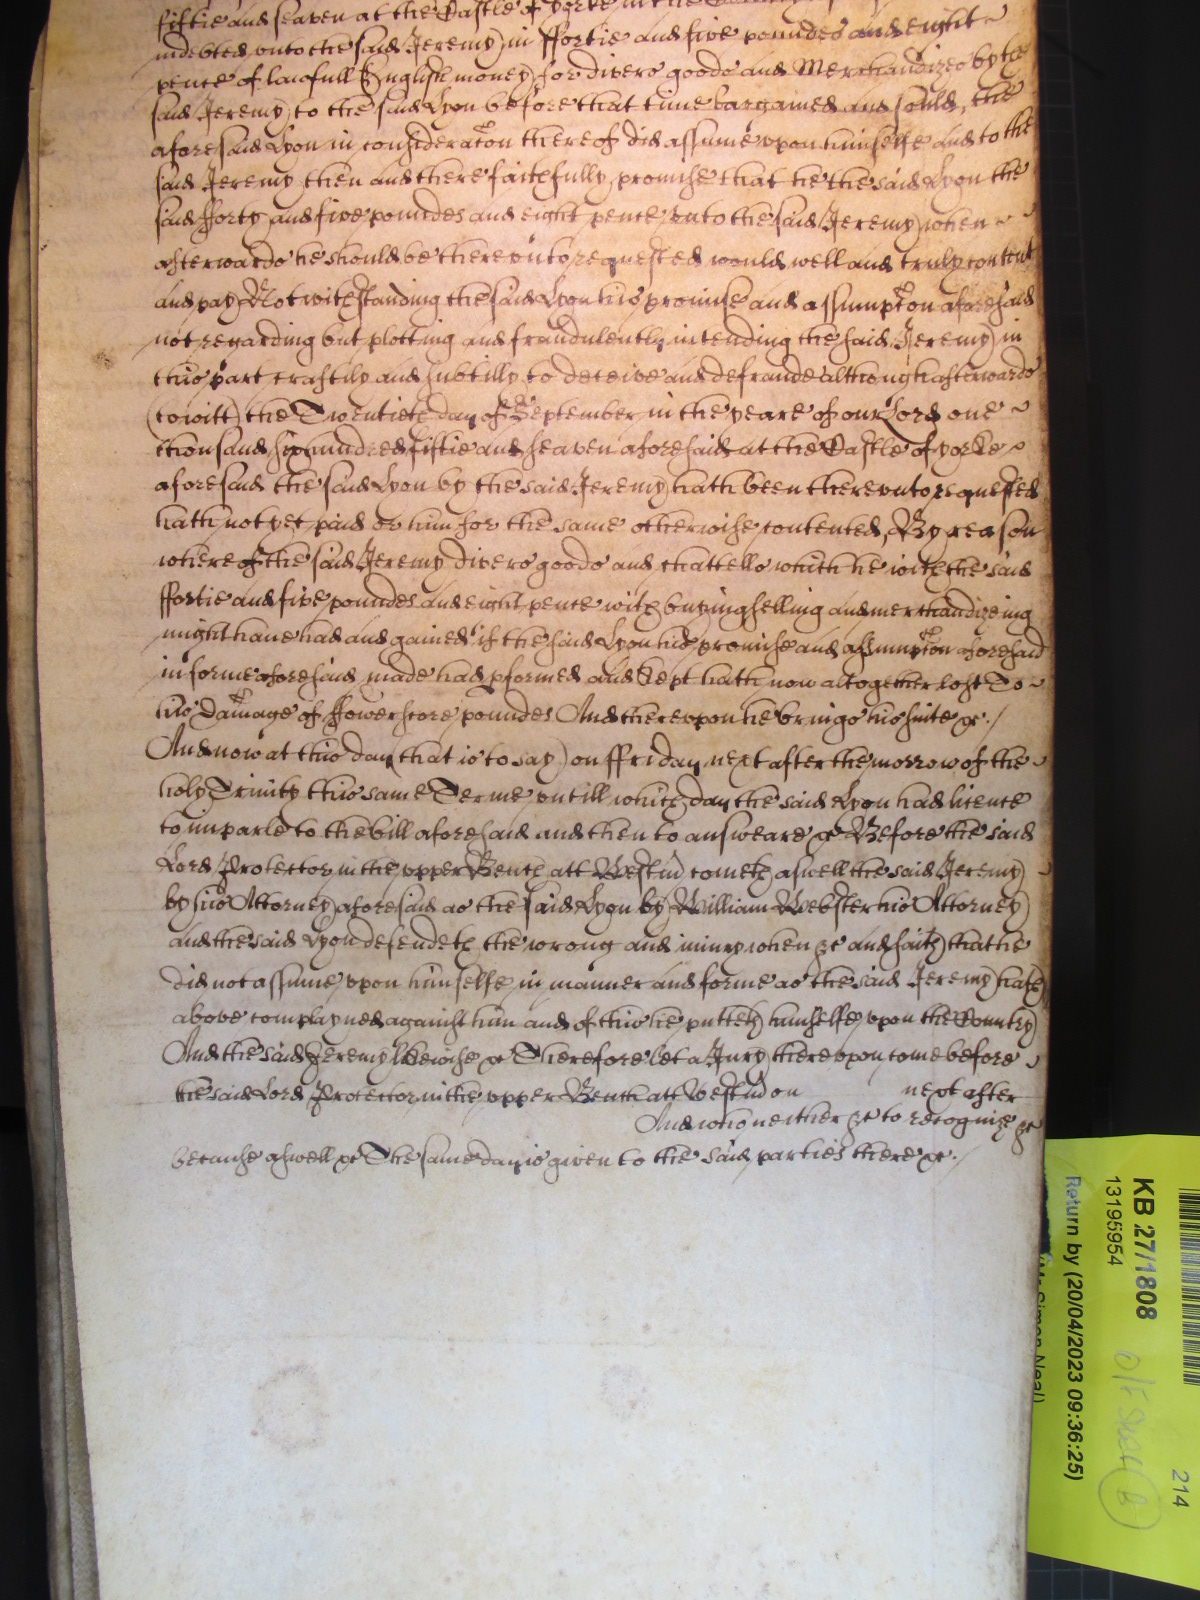 fiftie and seaven at the Castle of Yorke in the
indebted unto the said Jeremy in ffortie and five poundes and eight
pence of lawfull English money for divers goods and Merchandizes by the
said Jeremy to the said Lyon before that time bargained and sould, the
aforesaid Lyon in consideracon thereof did assume upon himselfe and to the
said Jeremy then and there faithfully promise that he the said Lyon the
said fforty and five poundes and eight pence unto the said Jeremy when
afterwards he should be thereunto requested would well and truly content
and pay Notwithstanding the said Lyon his promise and assumpcon aforesaid
not regarding but plotting and fraudulently intending the said Jeremy in
this part craftily and subtilly to deceive and defraude although afterwards
(to witt) the Twentieth day of September in the yeare of our Lord one
thousand six hundred fiftie and seaven aforesaid at the Castle of Yorke
aforesaid the said Lyon by the said Jeremy hath been thereunto requested
hath not yet paid or him for the same otherwise contented, By reason
whereof the said Jeremy divers goods and chattells which he with the said
ffortie and five poundes and eight pence with buying selling and merchandizeing
might have had and gained if the said Lyon his promise and assumpcon aforesaid
in forme aforesaid made had pformed and kept hath now altogether lost To
his Damage of ffower score poundes And thereupon he brings his suite &c./
And now at this day (that is to say) on ffriday next after the morrow of the
holy Trinity this same Terme untill which day the said Lyon had licence
to imparle to the bill aforesaid and then to answeare &c Before the said
Lord Protector in the upper Bench att Westm cometh aswell the said Jeremy
by his Attorney aforesaid as the said Lyon by William Webster his Attorney
and the said Lyon defendeth the wrong and iniury when &c and saith that he
did not assume upon himselfe in manner and forme as the said Jeremy hath
above complayned against him and of this he putteth himselfe upon the Country
And the said Jeremy likewise &c Therefore let a Jury thereupon come before
the said Lord Protector in the upper Bench att Westm on next after
And who neither &c to recognize &c
because aswell &c The same day is given to the said parties there &c./
KB 27/1808
13195954
Return by (20/04/2023 09:36:25)
(Mr Simon Neal)
214